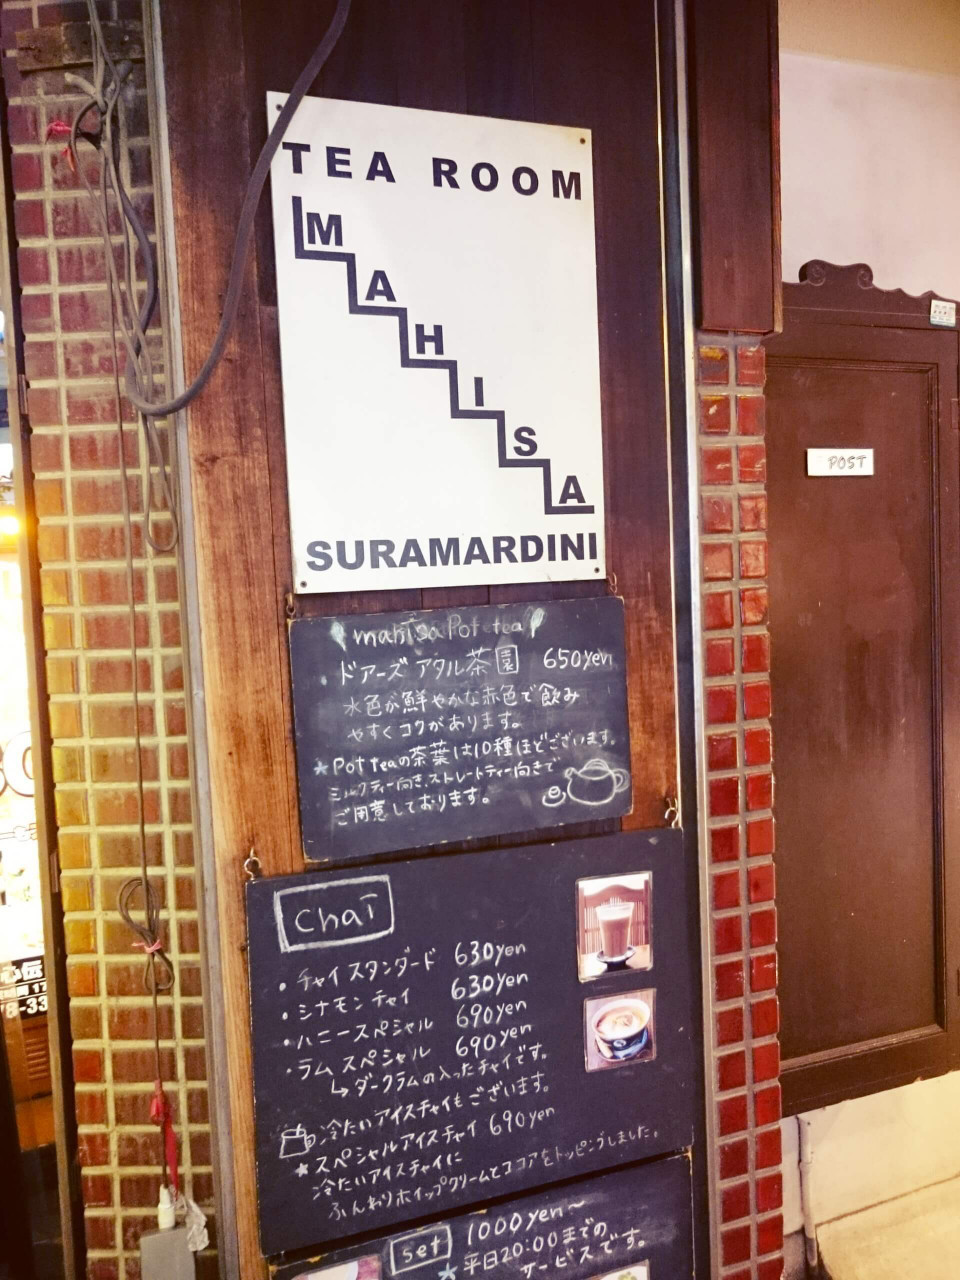 TEA ROOM
MAHISA
SURAMARDINI
POST
mahisa Pot tea
・ドアーズ アタル茶園 650yen
水色が鮮やかな赤色で飲み
やすくコクがあります。
★Pot teaの茶葉は10種ほどございます。
ミルクティー向き、ストレートティー向きで
ご用意しております。
chaī
・チャイスタンダード 630yen
・シナモンチャイ 630yen
・ハニースペシャル 690yen
・ラムスペシャル 690yen
↳ダークラムの入ったチャイです。
冷たいアイスチャイもございます。
★スペシャルアイスチャイ 690yen
冷たいアイスチャイに
ふんわりホイップクリームとココアをトッピングしました。
set 1000yen〜
★平日20:00までの
サービスです。